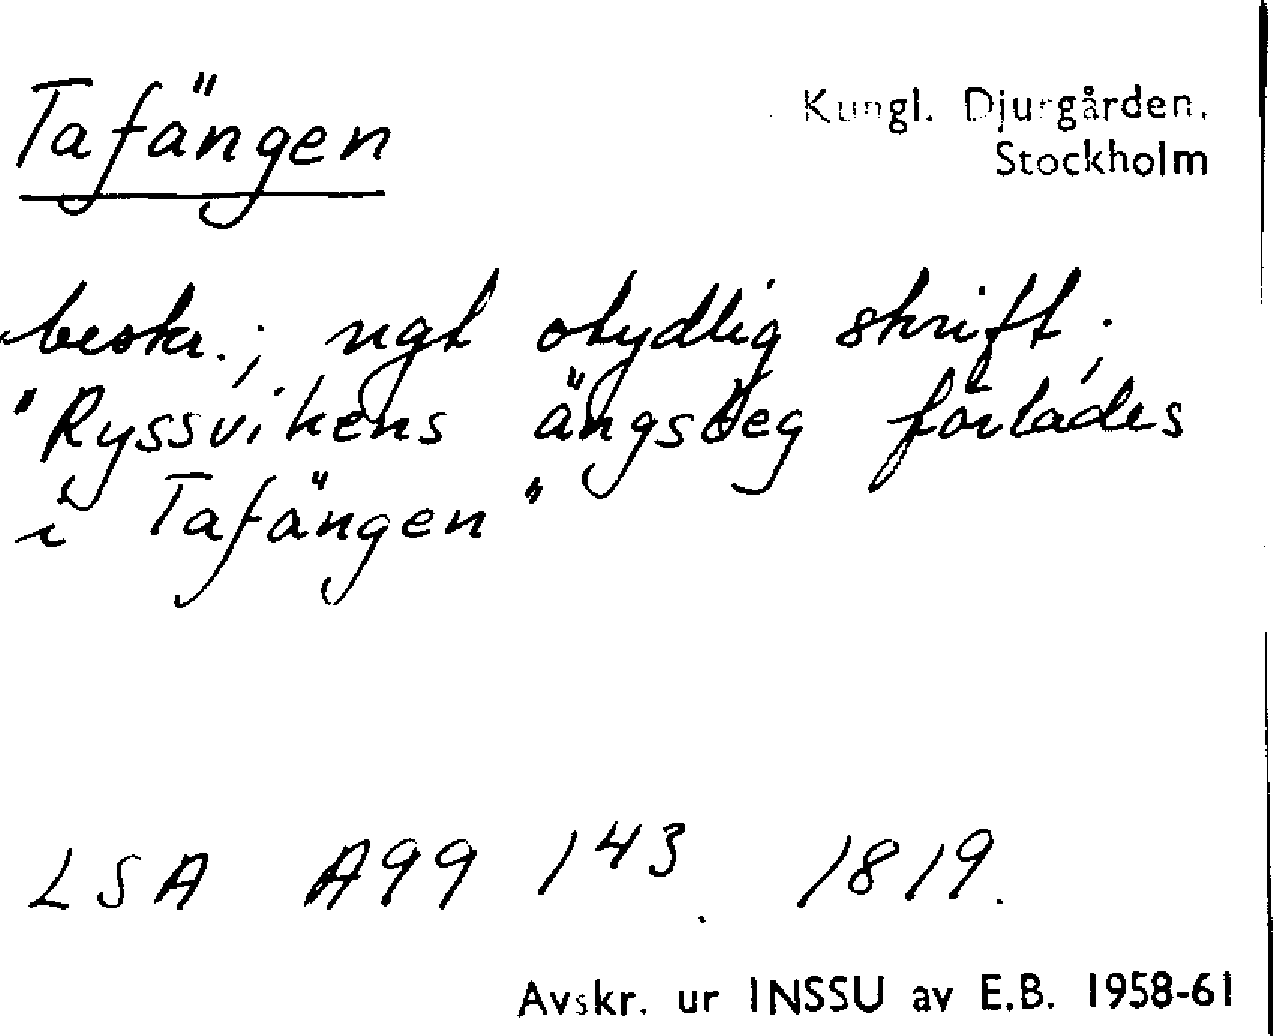 Tafängen
Kungl. Djurgården.
Stockholm
beskr.; ngt otydlig skrift;
"Ryssvikens ängsteg förlades
i Tafängen"
LSA A99 143. 1819.
Avskr. ur INSSU av E.B. 1958-61